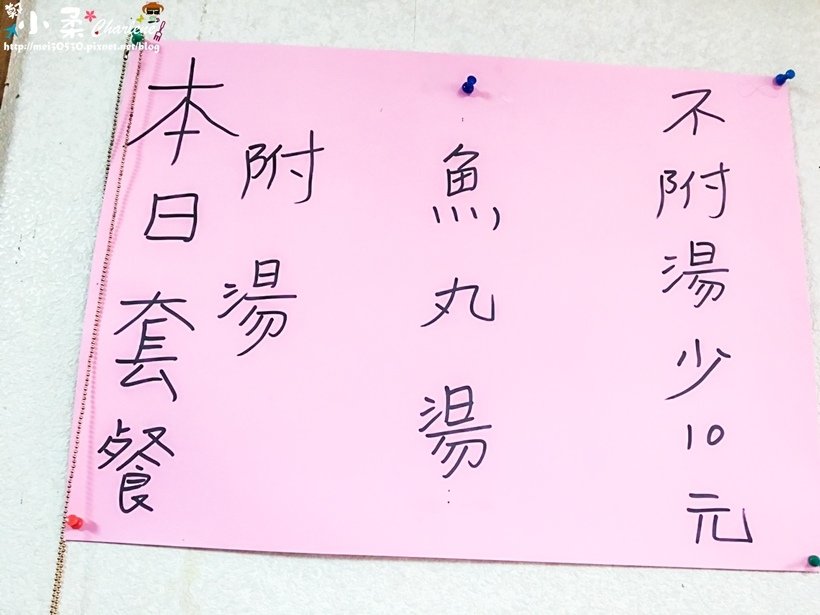 小柔 Channel
http://mei30530.pixnet.net/blog
本日套餐
附湯
魚丸湯
不附湯少10元